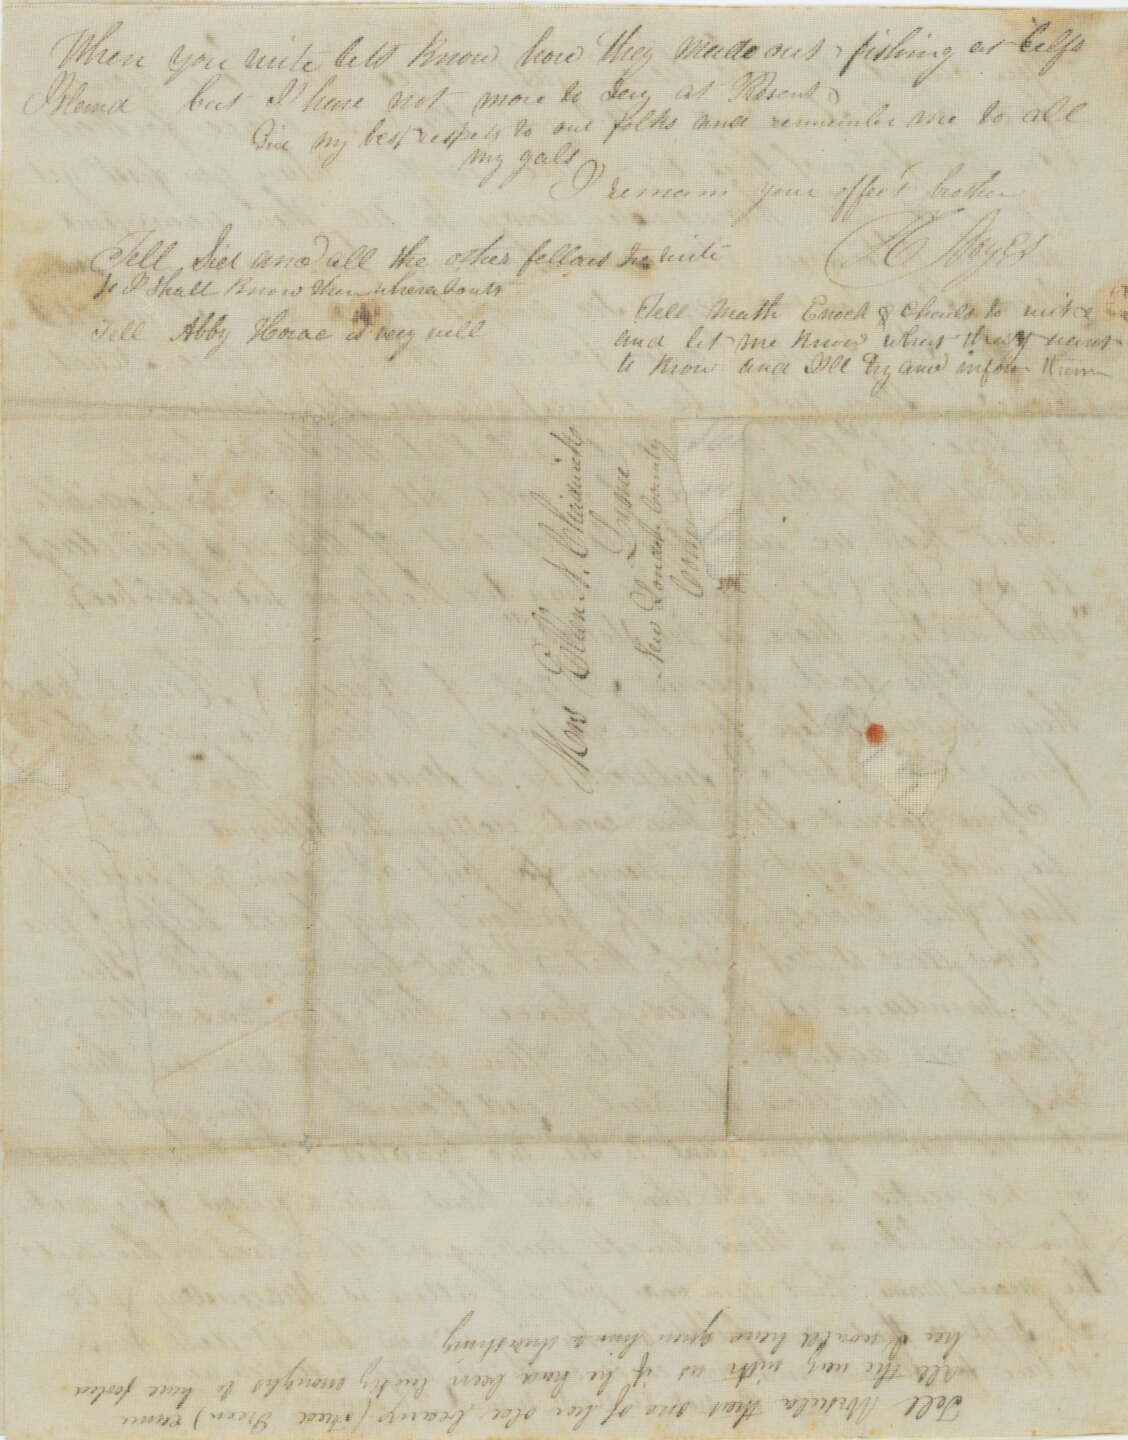 When you write lets know how they made out fishing at
Island but I have not more to Say at Present
Give my best respets to our folks and remember me to all
my gals
I remain your affect brother
Noyes
Tell and all the other fellows to write
so I shall know their whereabouts
Tell Abby Horac is very well
Tell Math Enoch & Charls to write
and let me know what they want
to know and I'll try and inform them
Mrs Ellen N. Chadwick
Lyme
New London County
Conn
Tell Ursula that one of her old beaux (Fred Green) came
all the way with us if he had been lucky enought to have
her I would have given him a thrashing